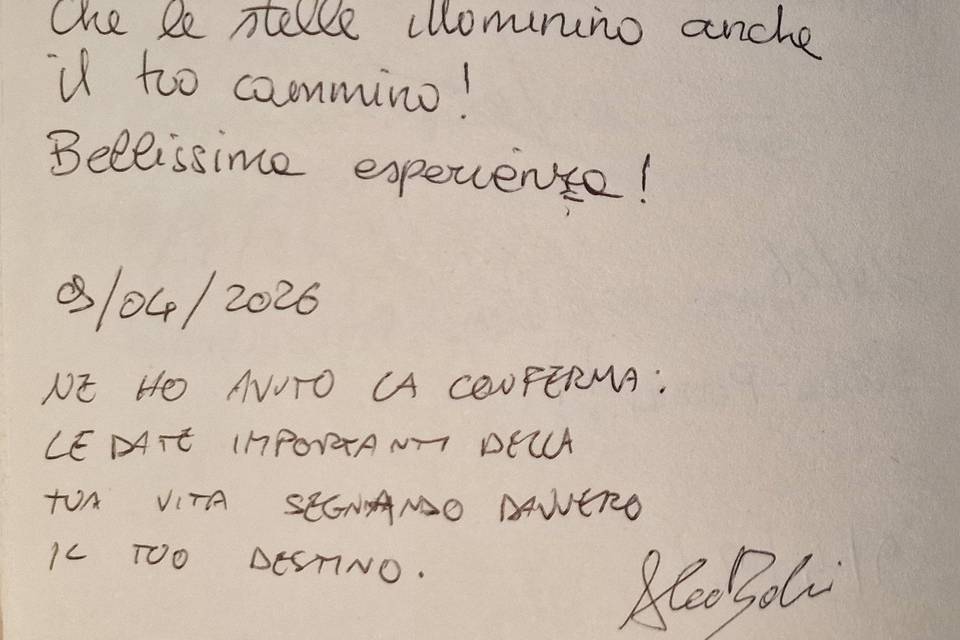 Che le stelle illuminino anche
il tuo cammino!
Bellissima esperienza!
9/04/2026
NE HO AVUTO LA CONFERMA:
LE DATE IMPORTANTI DELLA
TUA VITA SEGNANDO DAVVERO
IL TUO DESTINO.